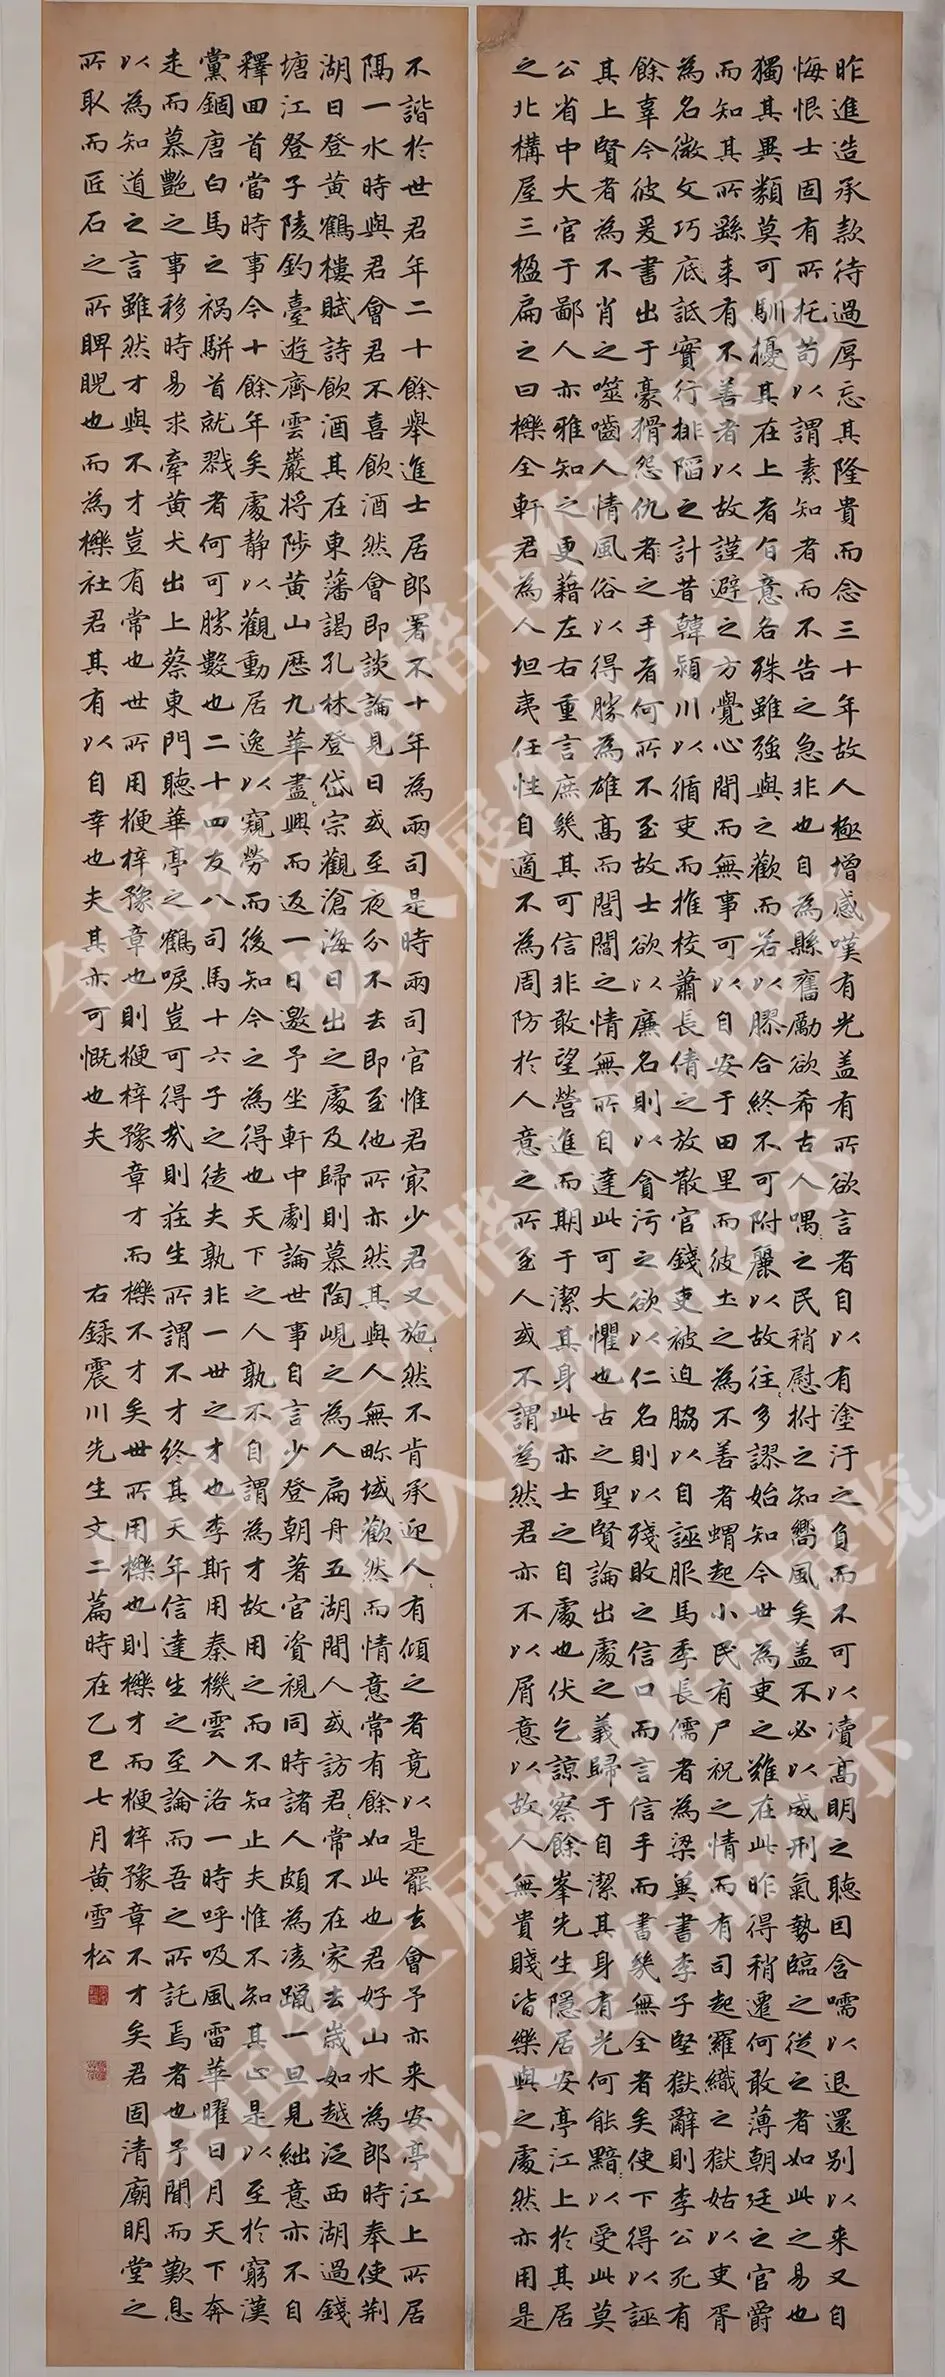 昨進造承款待過厚忘其隆貴而念三十年故人極增感嘆有光盖有所欲言者自以有塗汙之負而不可以瀆高明之聽囙含嚅以退還别以来又自
悔恨士固有所托苟以謂素知者而不告之急非也自為縣舊勵欲希古人喁之民稍慰拊之知嚮風矣盖不必以威刑氣勢臨之從之者如此之易也
獨其異類莫可馴擾其在上者百意各殊雖強與之歡而若以膠合終不可附麗以故往多謬始知今世為吏之難在此昨得稍遷何敢薄朝廷之官爵
而知其所繇来有不善者以故謹避之方覺心間而無事可以自安于田里而彼土之為不善者蝟起小民有尸祝之情而有司起羅織之獄姑以吏胥
為名微文巧底詆實行排陷之計昔韓潁川以循吏而推校蕭長倩之放散官錢吏被迫脇以自誣服馬季長儒者為梁冀書李子堅獄辭則李公死有
餘辜今彼爰書出于豪猾怨仇者之手者何所不至故士欲以廉名則以貪污之欲以仁名則以殘敗之信口而言信手而書幾無全者矣使下得以誣
其上賢者為不肖之噬嚙人情風俗以得勝為雄高而閭閻之情無所自達此可大懼也古之聖賢論出處之義歸于自潔其身有光何能黯以受此莫
公省中大官于鄙人亦雅知之更藉左右重言庶幾其可信非敢望營進而期于潔其身此亦士之自處也伏乞諒察餘峯先生隱居安亭江上於其居
之北構屋三楹扁之曰櫟全軒君為人坦夷任性自適不為周防於人意之所至人或不謂為然君亦不以屑意以故人無貴賤皆樂與之處然亦用是
不諧於世君年二十餘舉進士居郎署不十年為兩司是時兩司官惟君㝡少君又施然不肯承迎人有傾之者竟以是罷去會予亦来安亭江上所居
隔一水時與君會君不喜飲酒然會即談論見日或至夜分不去即至他所亦然其與人無畛域歡然而情意常有餘如此也君好山水為郎時奉使荆
湖日登黄鶴樓賦詩飲酒其在東藩謁孔林登岱宗觀滄海日出之處及歸則慕陶峴之為人扁舟五湖間人或訪君常不在家去歲如越泛西湖過錢
塘江登子陵釣臺遊齊雲巖将陟黄山歷九華盡興而返一日邀予坐軒中劇論世事自言少登朝著官資視同時諸人頗為凌躐一旦見絀意亦不自
釋回首當時事今十餘年矣處静以觀動居逸以窺勞而後知今之為得也天下之人孰不自謂為才故用之而不知止夫惟不知其止是以至於窮漢
黨錮唐白馬之祸駢首就戮者何可勝數也二十四友八司馬十六子之徒夫孰非一世之才也李斯用秦機雲入洛一時呼吸風雷華曜日月天下奔
走而慕艷之事移時易求牽黄犬出上蔡東門聽華亭之鶴唳豈可得哉則莊生所謂不才終其天年信達生之至論而吾之所託焉者也予聞而歎息
以為知道之言雖然才與不才豈有常也世所用楩梓豫章也則楩梓豫章才而櫟不才矣世所用櫟也則櫟才而楩梓豫章不才矣君固清廟明堂之
所取而匠石之所睥睨也而為櫟社君其有以自幸也夫其亦可慨也夫 右録震川先生文二篇時在乙巳七月黄雪松
全国第三届楷书作品展览
拟入展作品公示
全国第三届楷书作品展览
拟入展作品公示
全国第三届楷书作品展览
拟入展作品公示